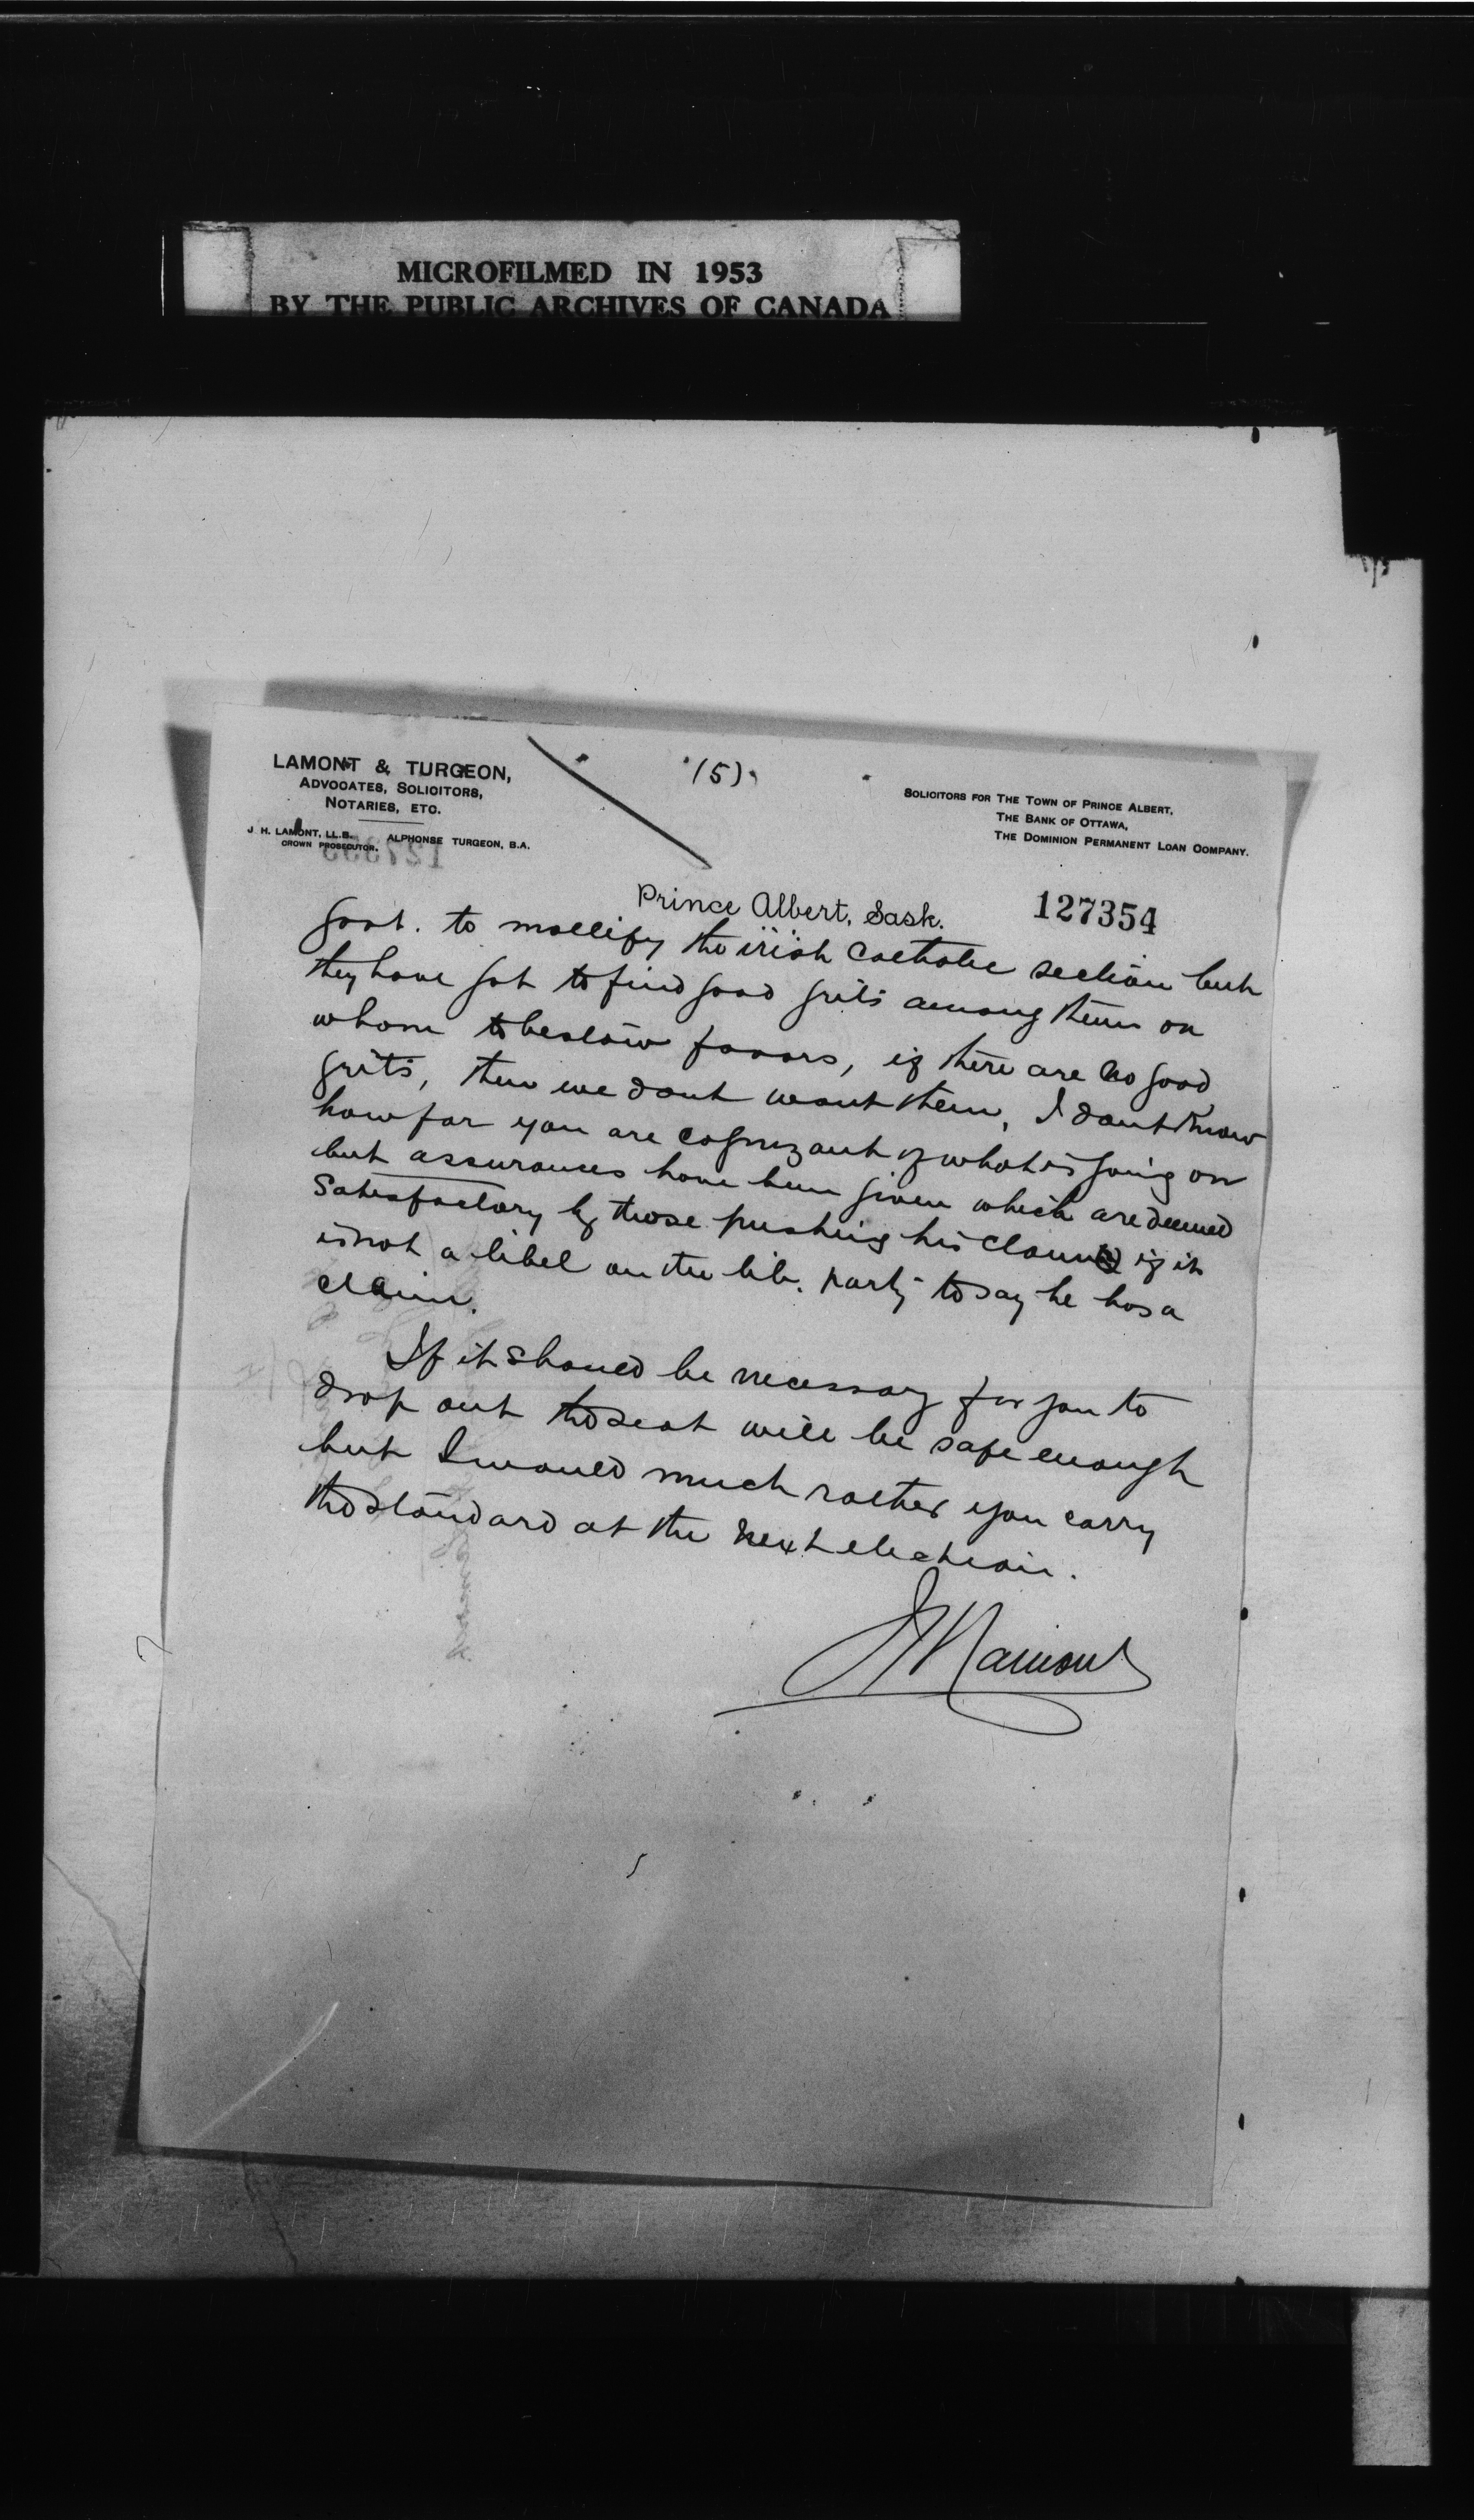 MICROFILMED IN 1953
BY THE PUBLIC ARCHIVES OF CANADA
LAMONT & TURGEON,
ADVOCATES, SOLICITORS,
NOTARIES, ETC.
J. H. LAMONT, LL.B. ALPHONSE TURGEON, B.A.
CROWN PROSECUTOR.
(5)
SOLICITORS FOR THE TOWN OF PRINCE ALBERT,
THE BANK OF OTTAWA,
THE DOMINION PERMANENT LOAN COMPANY.
Prince Albert, Sask.
127354
Govt. to mollify the irish Catholic section but
they have got to find good grits among them on
whom to bestow favors, if there are no good
grits, then we dont want them, I dont know
how far you are cognizant of what is going on
but assurances have been given which are deemed
satisfactory by those pushing his claim if it
is not a libel on the lib. party to say he has a
claim.
If it should be necessary for you to
drop out the seat will be safe enough
but I would much rather you carry
the standard at the next election.
JHLamont